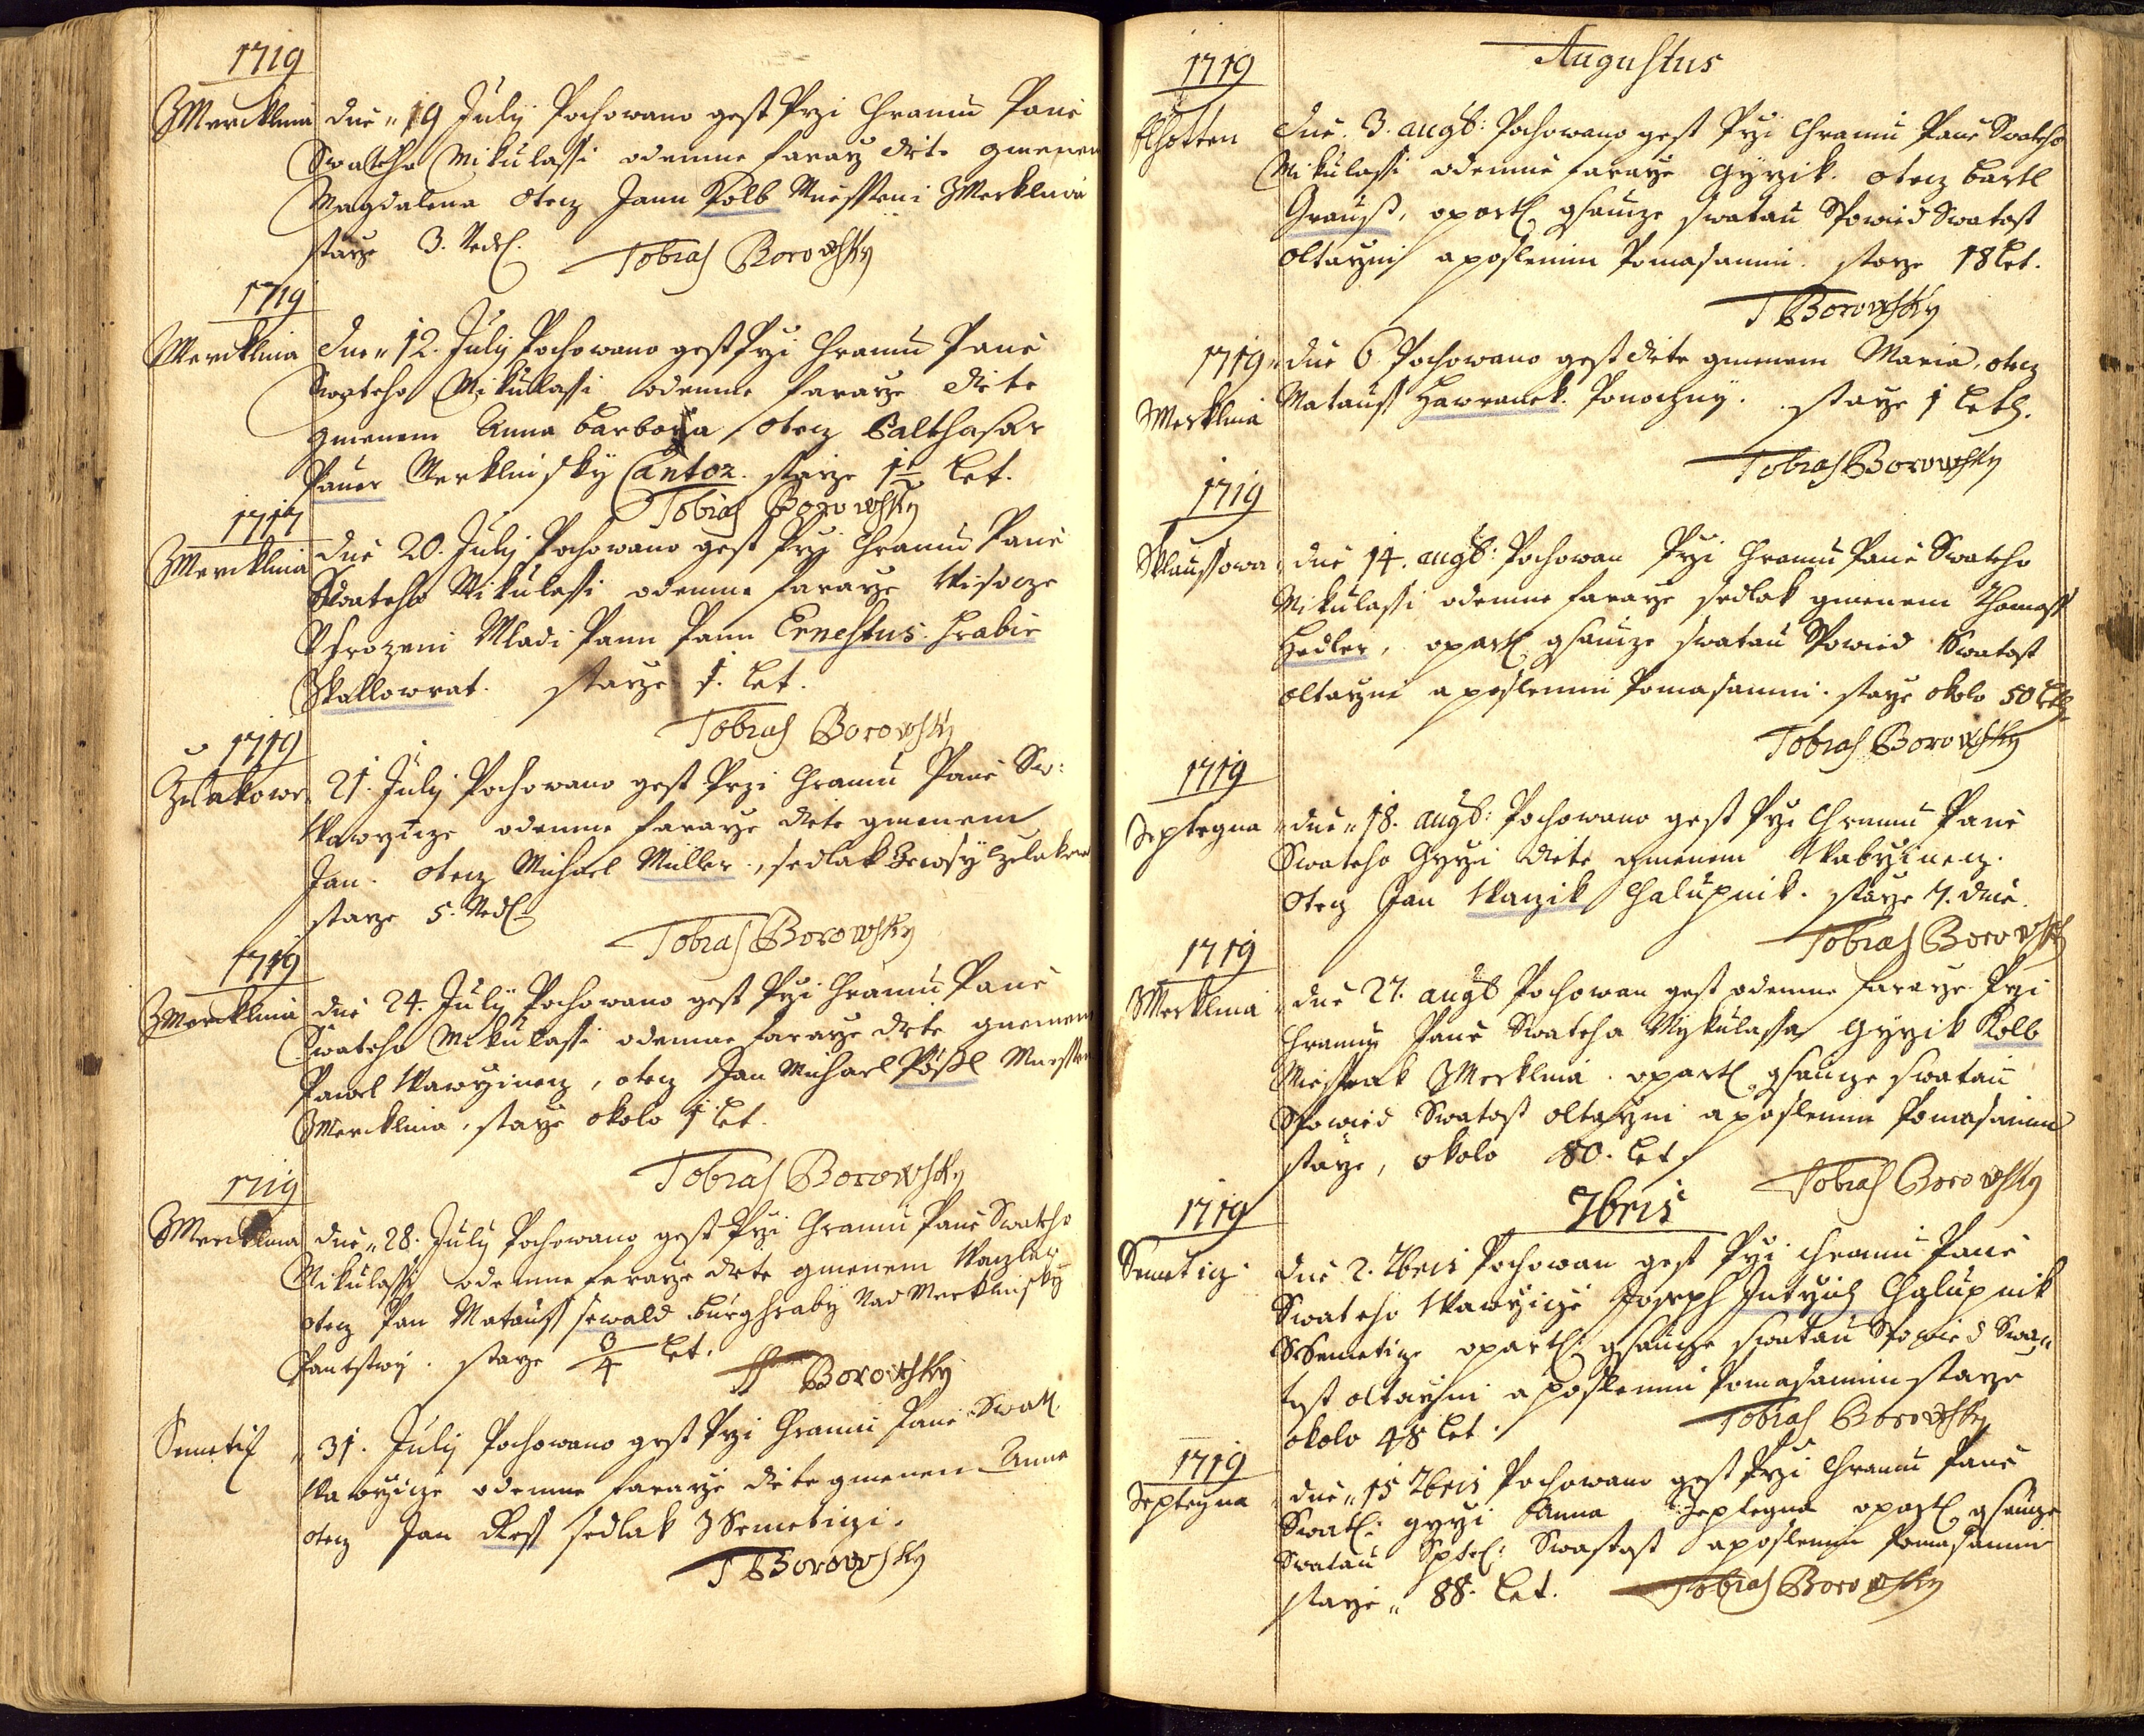 1719
Z Mercklina dne „ 19 July Pochowano gest Przi Chramu Panie
Swateho Mikulassi odemne faraz dite gmenem
Magdalena Otecz Jann Kolb Miessteni Z Merklina
starze 3. Nedl. Tobias Borowsky
1719
Mercklina dne „ 12. July Pochowano gest Przi Chramu Panie
Swateho Mikulassi odemne fararze dite
gmenem Anna Barbora Otecz Balthasar
Pauer Merklinsky Cantor. starze 1 1/2 Let.
Tobias Borowsky
1717
Z Mercklina dne 20. July Pochowano gest Przi Chramu Panie
Swateho Mikulassi odemne fararze Wisocze
Vrozeni Mladi Pann Pann Ernestus. Hrabie
Zkollowrat. starze 1. Let.
Tobias Borowsky
1719
Zelakowe „ 21. July Pochowano gest Przi Chramu Panie Sw:
Wawrzincze odemne fararze dite gmenem
Jan. Otecz Michael Müller, sedlak Zewsy Zzelakow
starze 5. Nedl.
Tobias Borowsky
1719
Z Mercklina dne 24. July Pochowano gest Przi Chramu Panie
Swateho Mikulassi odemne fararze dite gmenem
Pawel Wawrzinecz, otecz Jan Michael Pößl Miesten
Z Mercklina, starze okolo 1 Let.
Tobias Borowsky
1719
Z Mercklina dne „ 28. July Pochowano gest Przi Chramu Panie Swateho
Mikulassi odemne fararze dite gmenem Wanzler
otecz Pan Matauss sewald Burghraby Nad Merklinsky
Pantstwy. starze 3/4 Let.
Borowsky
Semetic „ 31. July Pochowano gest Przi Chramu Panie Swatl.
Wawrzincze odemne fararze dite gmenem Anna
otecz Jan Ress sedlak Z Semeticzi.
T Borowsky
Augustus
1719
Lhotten dne. 3. augs: Pochowano gest Przi Chramu Panie Swateho
Mikulassi odemne fararze Gyrzik. otecz Bartl
Grauß, opartl. gsaucze swatau Spowied Swatost
oltarzni a poslenim Pomasanim. starze 18 Let.
T Borowsky
1719 „ dne 6. Pochowano gest dite gmenem Maria, otecz
Merklina Matauss Hawranek. Ponoczny. starze 1 Leth.
Tobias Borowsky
1719
Sklaussowa „ dne 14. augs: Pochowan Przi Chramu Panie Swateho
Mikulassi odemne fararze sedlak gmenem Thomass
Hedler, opartl. gsaucze swatau Spowied Swatost
oltarzni a poslenim Pomasanim. starze okolo 50 Leth.
Tobias Borowsky
1719
Zeptegna „ dne „ 18. augs: Pochowano gest Przi Chramu Panie
Swateho Gyrzi dite gmenem Wawrzinecz.
Otecz Jan Wanzik Chalupnik. starze 7. dnie.
Tobias Borowsky
1719
Z Merklina „ dne 27. augs Pochowan gest odemne fararze Przi
Chramu Panie Swateho Mykulassa Gyrzik Kolb
Miesstak Z Merklina. opartl. gsaucze swatau
Spowied Swatost oltarzni a poslenim Pomasanim
starze, okolo 80. Let.
Tobias Borowsky
7bris
1719
Semeticz dne 2. 7bris Pochowan gest Przi Chramu Panie
Swateho Wawrzincze Joseph Jntrzich Chalupnik
Z Semeticze opartl. gsaucze swatau Spowied Swa„
tost oltarzni a poslenim Pomasanim starze
okolo 48 Let. Tobias Borowsky
1719
Zeptegna „ dne „ 15 7bris Pochowano gest Przi Chramu Panie
Swatl: gyrzi Anna Zeptegna opartl. gsaucze
Swatau Spowd: Swatost a poslenim Pomasanim
starze „ 88. Let. Tobias Borowsky